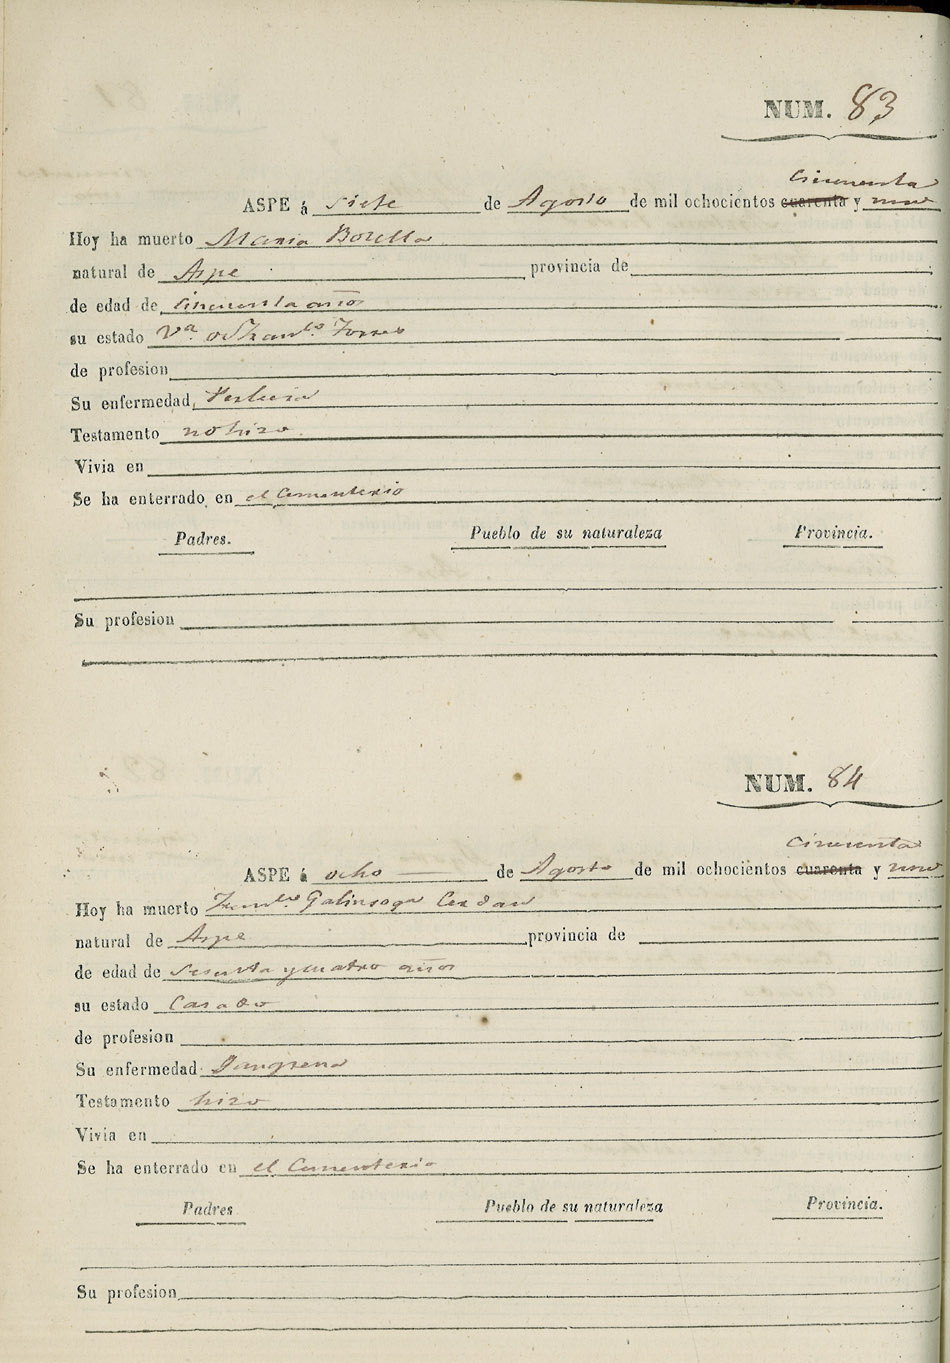 NUM. 83
cincuenta
ASPE á siete de Agosto de mil ochocientos cuarenta y uno
Hoy ha muerto Maria Botella
natural de Aspe provincia de
de edad de cincuenta años
su estado Vª. de Franco. Torres
de profesion
Su enfermedad,
Testamento no hizo.
Vivia en
Se ha enterrado en el Cementerio
Padres. Pueblo de su naturaleza Provincia.
Su profesion
NUM. 84
cincuenta
ASPE á ocho de Agosto de mil ochocientos cuarenta y uno
Hoy ha muerto Galinsoga Cerdan
natural de Aspe provincia de
de edad de sesenta y cuatro años
su estado Casado
de profesion
Su enfermedad Gangrena
Testamento hizo
Vivia en
Se ha enterrado en el Cementerio
Padres Pueblo de su naturaleza Provincia.
Su profesion